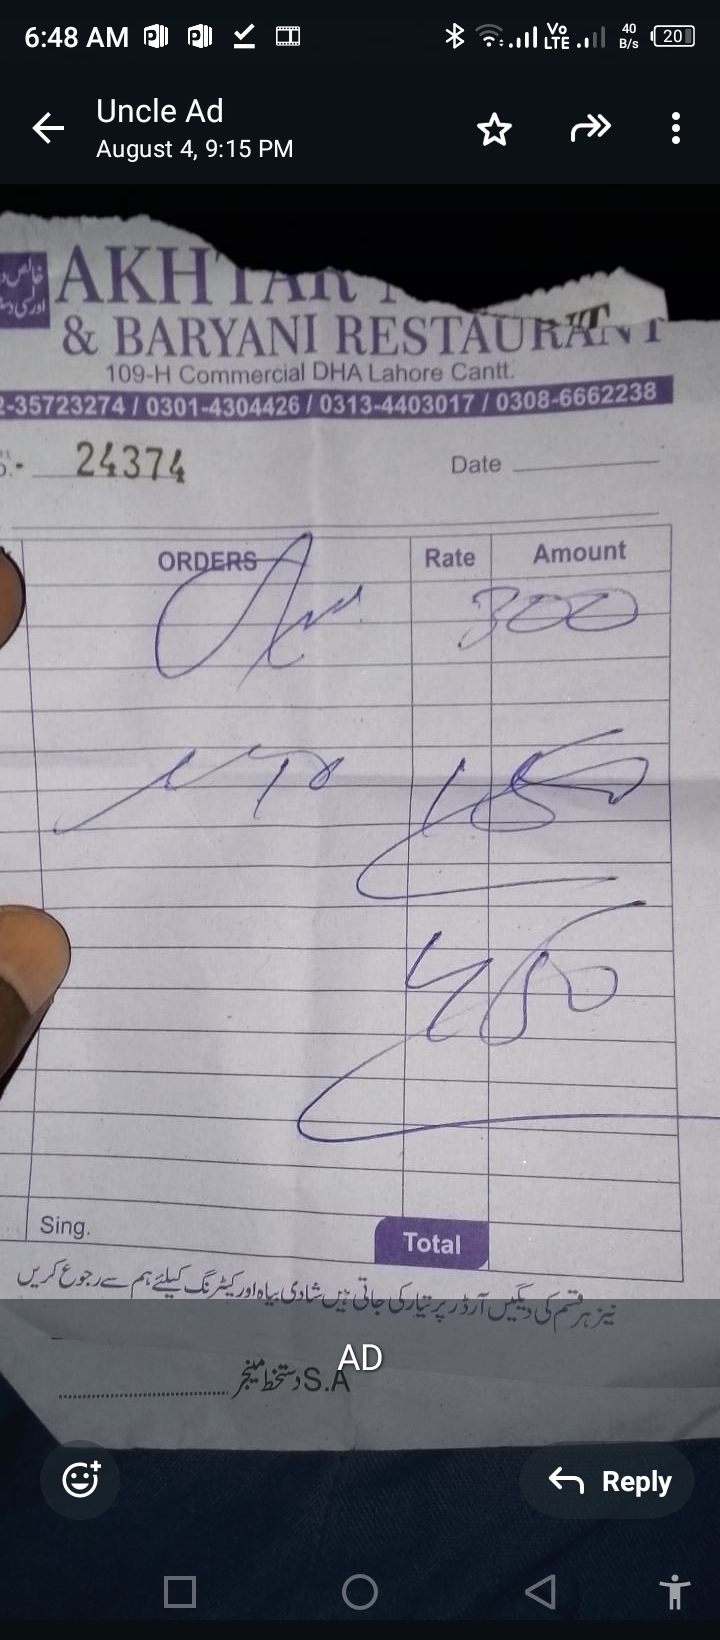 6:48 AM
Vo LTE 40 B/s 20
Uncle Ad
August 4, 9:15 PM
خالص
AKHTAR
& BARYANI RESTAURANT
109-H Commercial DHA Lahore Cantt.
2-35723274 / 0301-4304426 / 0313-4403017 / 0308-6662238
24374 Date
ORDERS Rate Amount
300
150
450
Sing. Total
نیز ہر قسم کی دیگیں آرڈر پر تیار کی جاتی ہیں شادی بیاہ اور کیٹرنگ کیلئے ہم سے رجوع کریں
AD
S.A دستخط مینجر
Reply